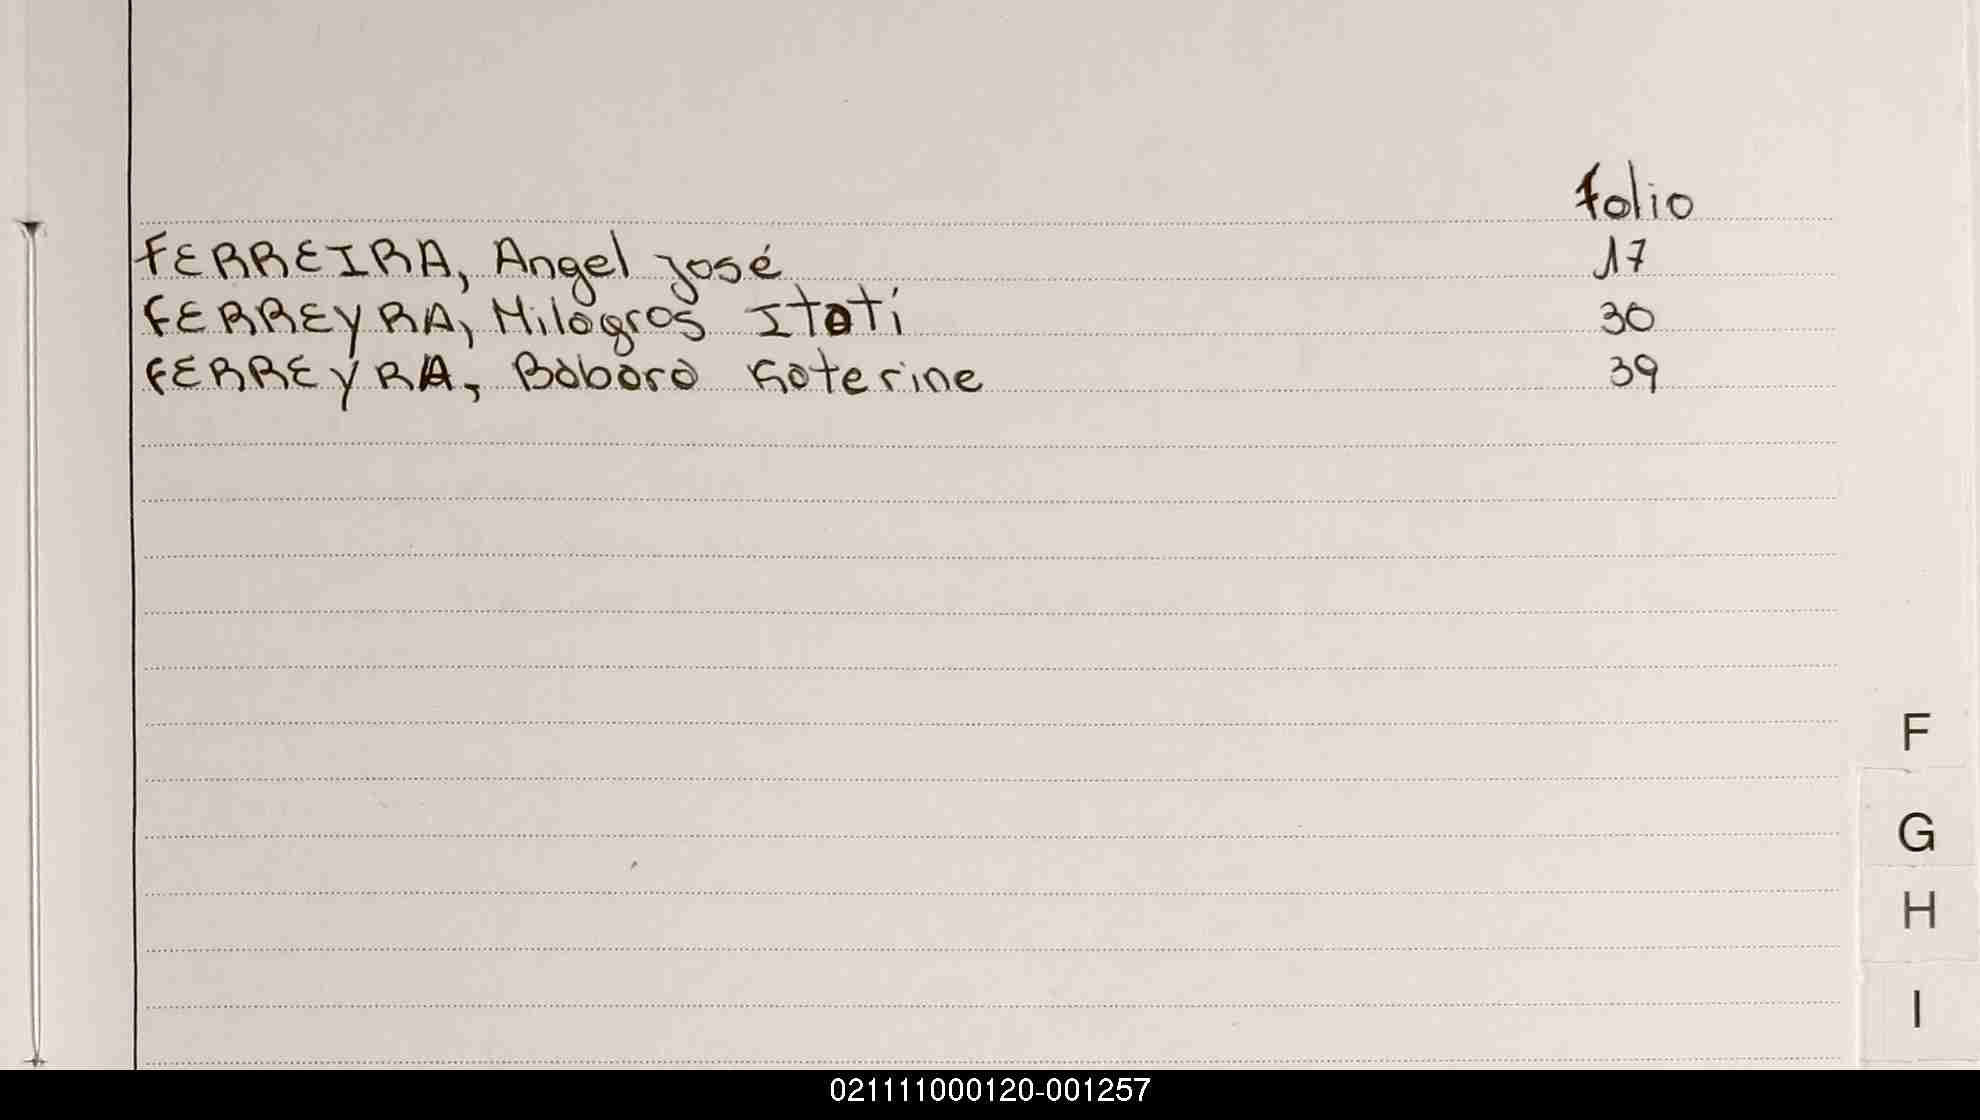 Folio
FERREIRA, Angel José 17
FERREYRA, Milagros Itatí 30
FERREYRA, Babara Katerine 39
F
G
H
I
021111000120-001257